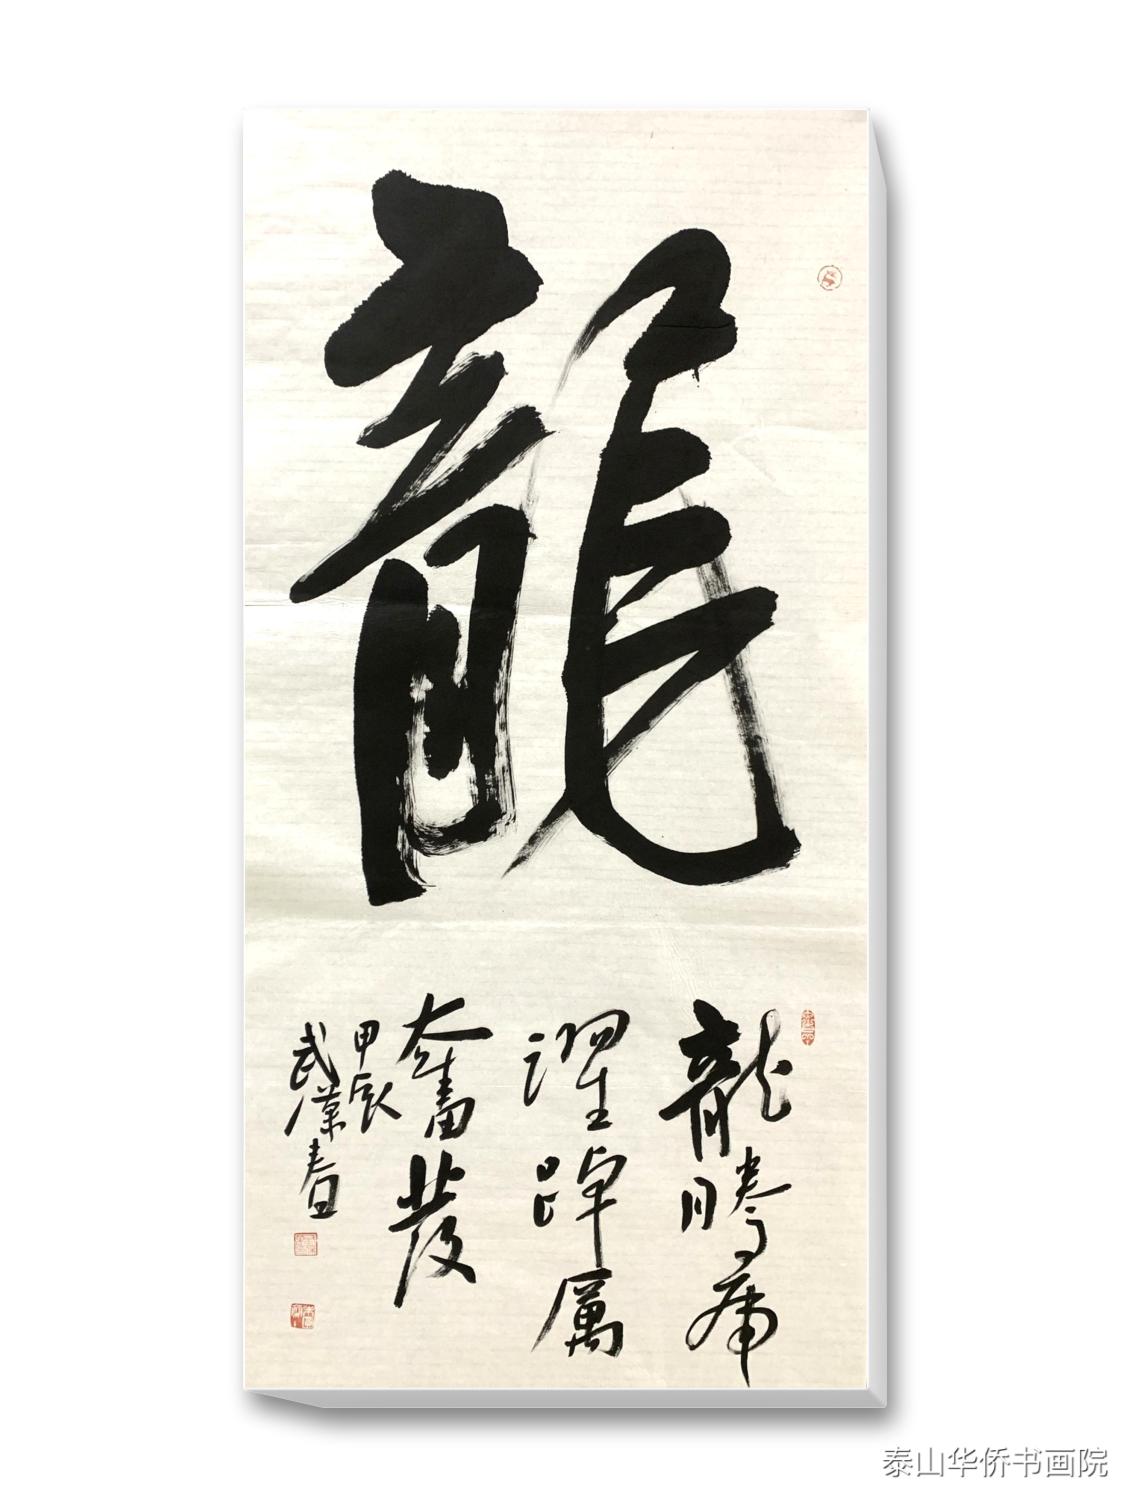 龍
龍騰虎
躍踔厲
奮發
甲辰
武業春
泰山华侨书画院